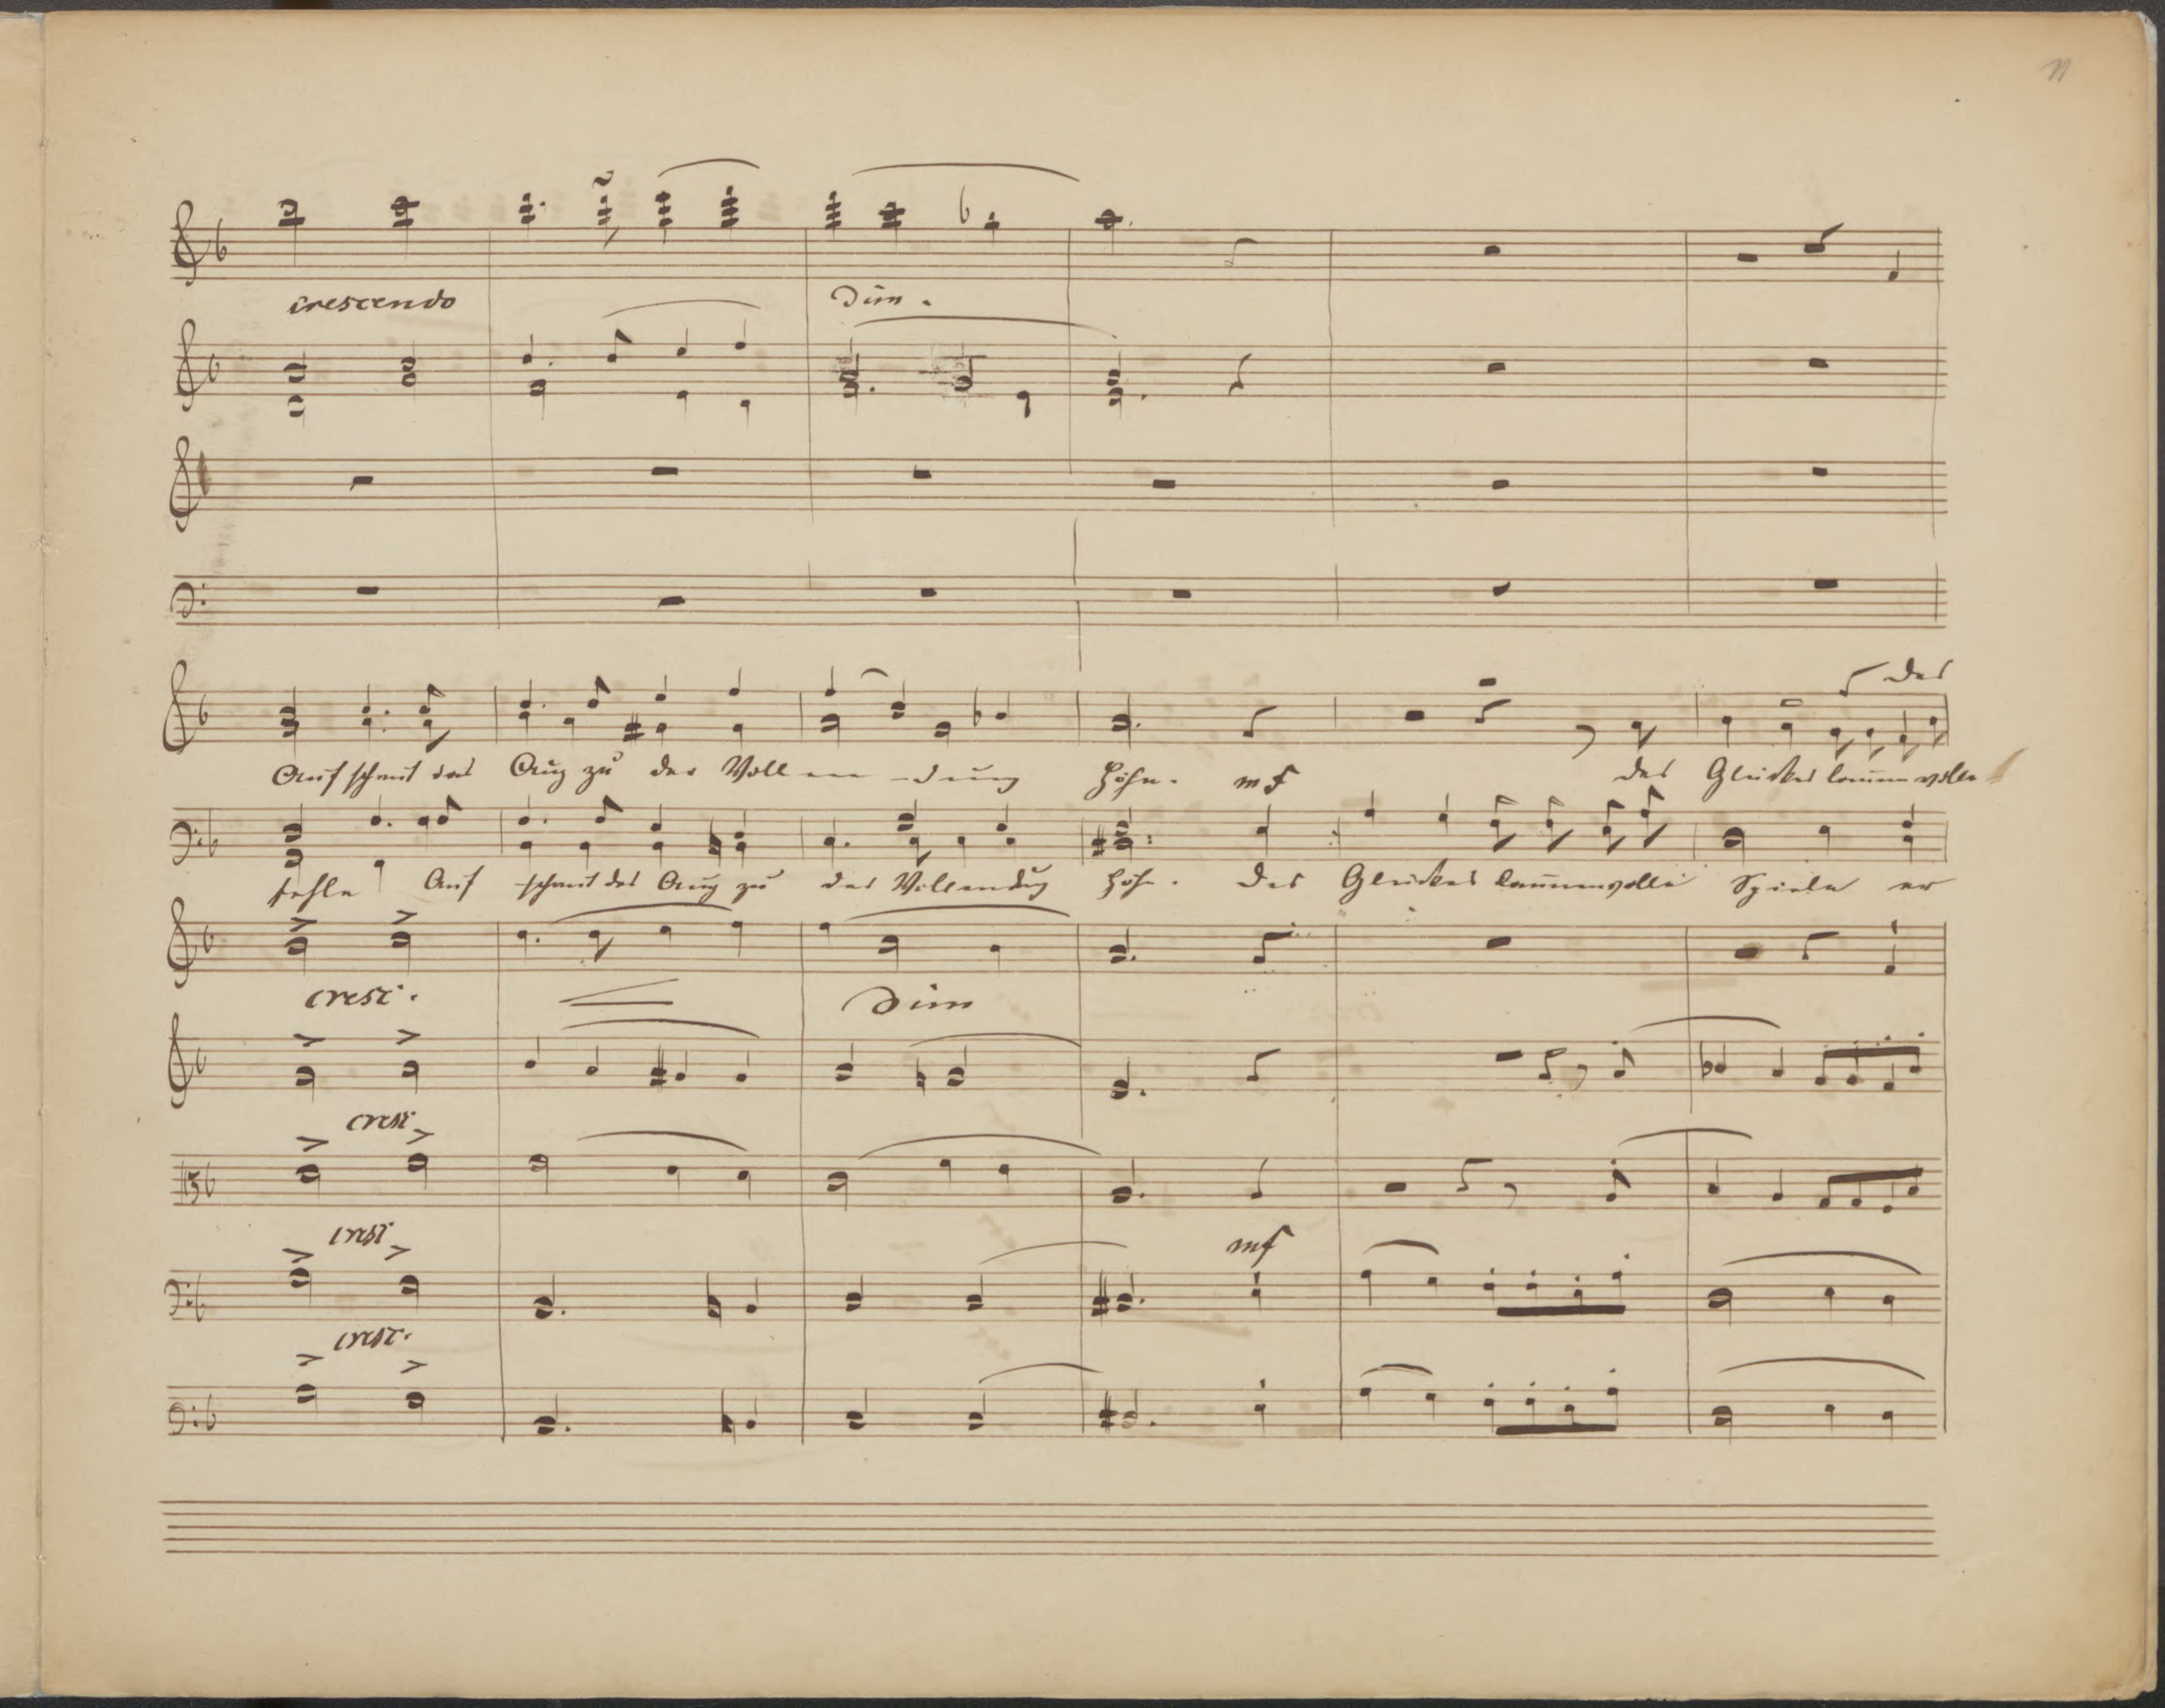 11
crescendo
dim.
des
Auf schaut das Aug zu der Voll en - dung Höhn. mf des Glückes launenvolle
fehle Auf schaut das Aug zu der Vollendung Höhn. des Glückes launenvolle Spiele er
cresc. dim
cresc.
cresc. mf
cresc.